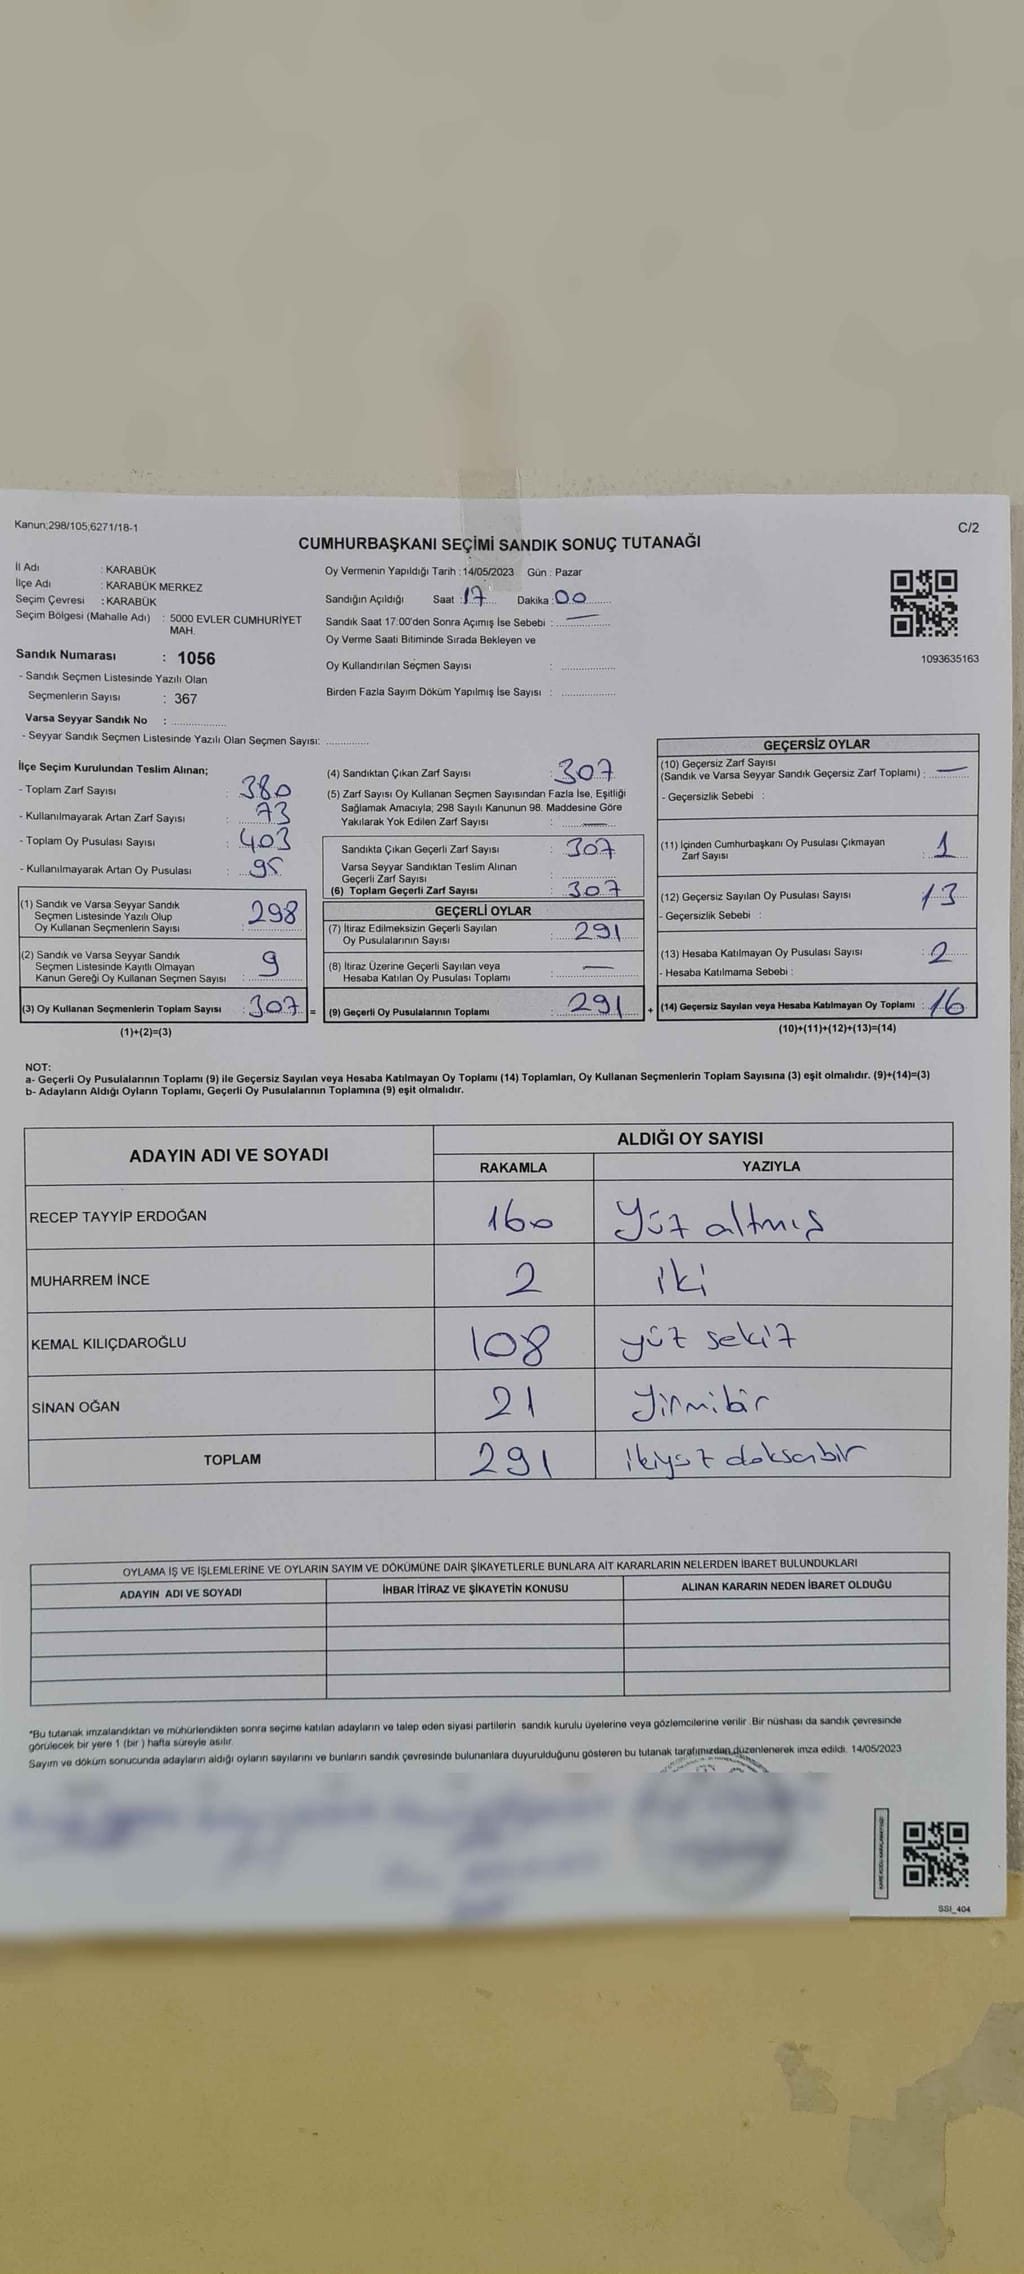 Kanun;298/105;6271/18-1
C/2
CUMHURBAŞKANI SEÇİMİ SANDIK SONUÇ TUTANAĞI
İl Adı : KARABÜK
İlçe Adı : KARABÜK MERKEZ
Seçim Çevresi : KARABÜK
Seçim Bölgesi (Mahalle Adı) : 5000 EVLER CUMHURİYET
MAH.
Sandık Numarası : 1056
- Sandık Seçmen Listesinde Yazılı Olan
Seçmenlerin Sayısı : 367
Varsa Seyyar Sandık No : ................
- Seyyar Sandık Seçmen Listesinde Yazılı Olan Seçmen Sayısı: ............
Oy Vermenin Yapıldığı Tarih : 14/05/2023 Gün : Pazar
Sandığın Açıldığı Saat : 17 Dakika : 00
Sandık Saat 17:00'den Sonra Açımış İse Sebebi : —
Oy Verme Saati Bitiminde Sırada Bekleyen ve
Oy Kullandırılan Seçmen Sayısı : ................
Birden Fazla Sayım Döküm Yapılmış İse Sayısı : ................
1093635163
İlçe Seçim Kurulundan Teslim Alınan;
- Toplam Zarf Sayısı : 380
- Kullanılmayarak Artan Zarf Sayısı : 73
- Toplam Oy Pusulası Sayısı : 403
- Kullanılmayarak Artan Oy Pusulası : 95
(1) Sandık ve Varsa Seyyar Sandık
Seçmen Listesinde Yazılı Olup
Oy Kullanan Seçmenlerin Sayısı : 298
(2) Sandık ve Varsa Seyyar Sandık
Seçmen Listesinde Kayıtlı Olmayan
Kanun Gereği Oy Kullanan Seçmen Sayısı : 9
(3) Oy Kullanan Seçmenlerin Toplam Sayısı : 307 =
(1)+(2)=(3)
(4) Sandıktan Çıkan Zarf Sayısı : 307
(5) Zarf Sayısı Oy Kullanan Seçmen Sayısından Fazla İse, Eşitliği
Sağlamak Amacıyla; 298 Sayılı Kanunun 98. Maddesine Göre
Yakılarak Yok Edilen Zarf Sayısı : —
Sandıkta Çıkan Geçerli Zarf Sayısı : 307
Varsa Seyyar Sandıktan Teslim Alınan
Geçerli Zarf Sayısı : ................
(6) Toplam Geçerli Zarf Sayısı : 307
GEÇERLİ OYLAR
(7) İtiraz Edilmeksizin Geçerli Sayılan
Oy Pusulalarının Sayısı : 291
(8) İtiraz Üzerine Geçerli Sayılan veya
Hesaba Katılan Oy Pusulası Toplamı : —
(9) Geçerli Oy Pusulalarının Toplamı : 291 +
GEÇERSİZ OYLAR
(10) Geçersiz Zarf Sayısı
(Sandık ve Varsa Seyyar Sandık Geçersiz Zarf Toplamı) : —
- Geçersizlik Sebebi :
(11) İçinden Cumhurbaşkanı Oy Pusulası Çıkmayan
Zarf Sayısı : 1
(12) Geçersiz Sayılan Oy Pusulası Sayısı : 13
- Geçersizlik Sebebi :
(13) Hesaba Katılmayan Oy Pusulası Sayısı : 2
- Hesaba Katılmama Sebebi :
(14) Geçersiz Sayılan veya Hesaba Katılmayan Oy Toplamı : 16
(10)+(11)+(12)+(13)=(14)
NOT:
a- Geçerli Oy Pusulalarının Toplamı (9) ile Geçersiz Sayılan veya Hesaba Katılmayan Oy Toplamı (14) Toplamları, Oy Kullanan Seçmenlerin Toplam Sayısına (3) eşit olmalıdır. (9)+(14)=(3)
b- Adayların Aldığı Oyların Toplamı, Geçerli Oy Pusulalarının Toplamına (9) eşit olmalıdır.
ADAYIN ADI VE SOYADI ALDIĞI OY SAYISI
RAKAMLA YAZIYLA
RECEP TAYYİP ERDOĞAN 160 Yüz altmış
MUHARREM İNCE 2 iki
KEMAL KILIÇDAROĞLU 108 yüz sekiz
SİNAN OĞAN 21 Yirmibir
TOPLAM 291 ikiyüz doksanbir
OYLAMA İŞ VE İŞLEMLERİNE VE OYLARIN SAYIM VE DÖKÜMÜNE DAİR ŞİKAYETLERLE BUNLARA AİT KARARLARIN NELERDEN İBARET BULUNDUKLARI
ADAYIN ADI VE SOYADI İHBAR İTİRAZ VE ŞİKAYETİN KONUSU ALINAN KARARIN NEDEN İBARET OLDUĞU
*Bu tutanak imzalandıktan ve mühürlendikten sonra seçime katılan adayların ve talep eden siyasi partilerin sandık kurulu üyelerine veya gözlemcilerine verilir. Bir nüshası da sandık çevresinde
görülecek bir yere 1 (bir ) hafta süreyle asılır.
Sayım ve döküm sonucunda adayların aldığı oyların sayılarını ve bunların sandık çevresinde bulunanlara duyurulduğunu gösteren bu tutanak tarafımızdan düzenlenerek imza edildi. 14/05/2023
SSI_404